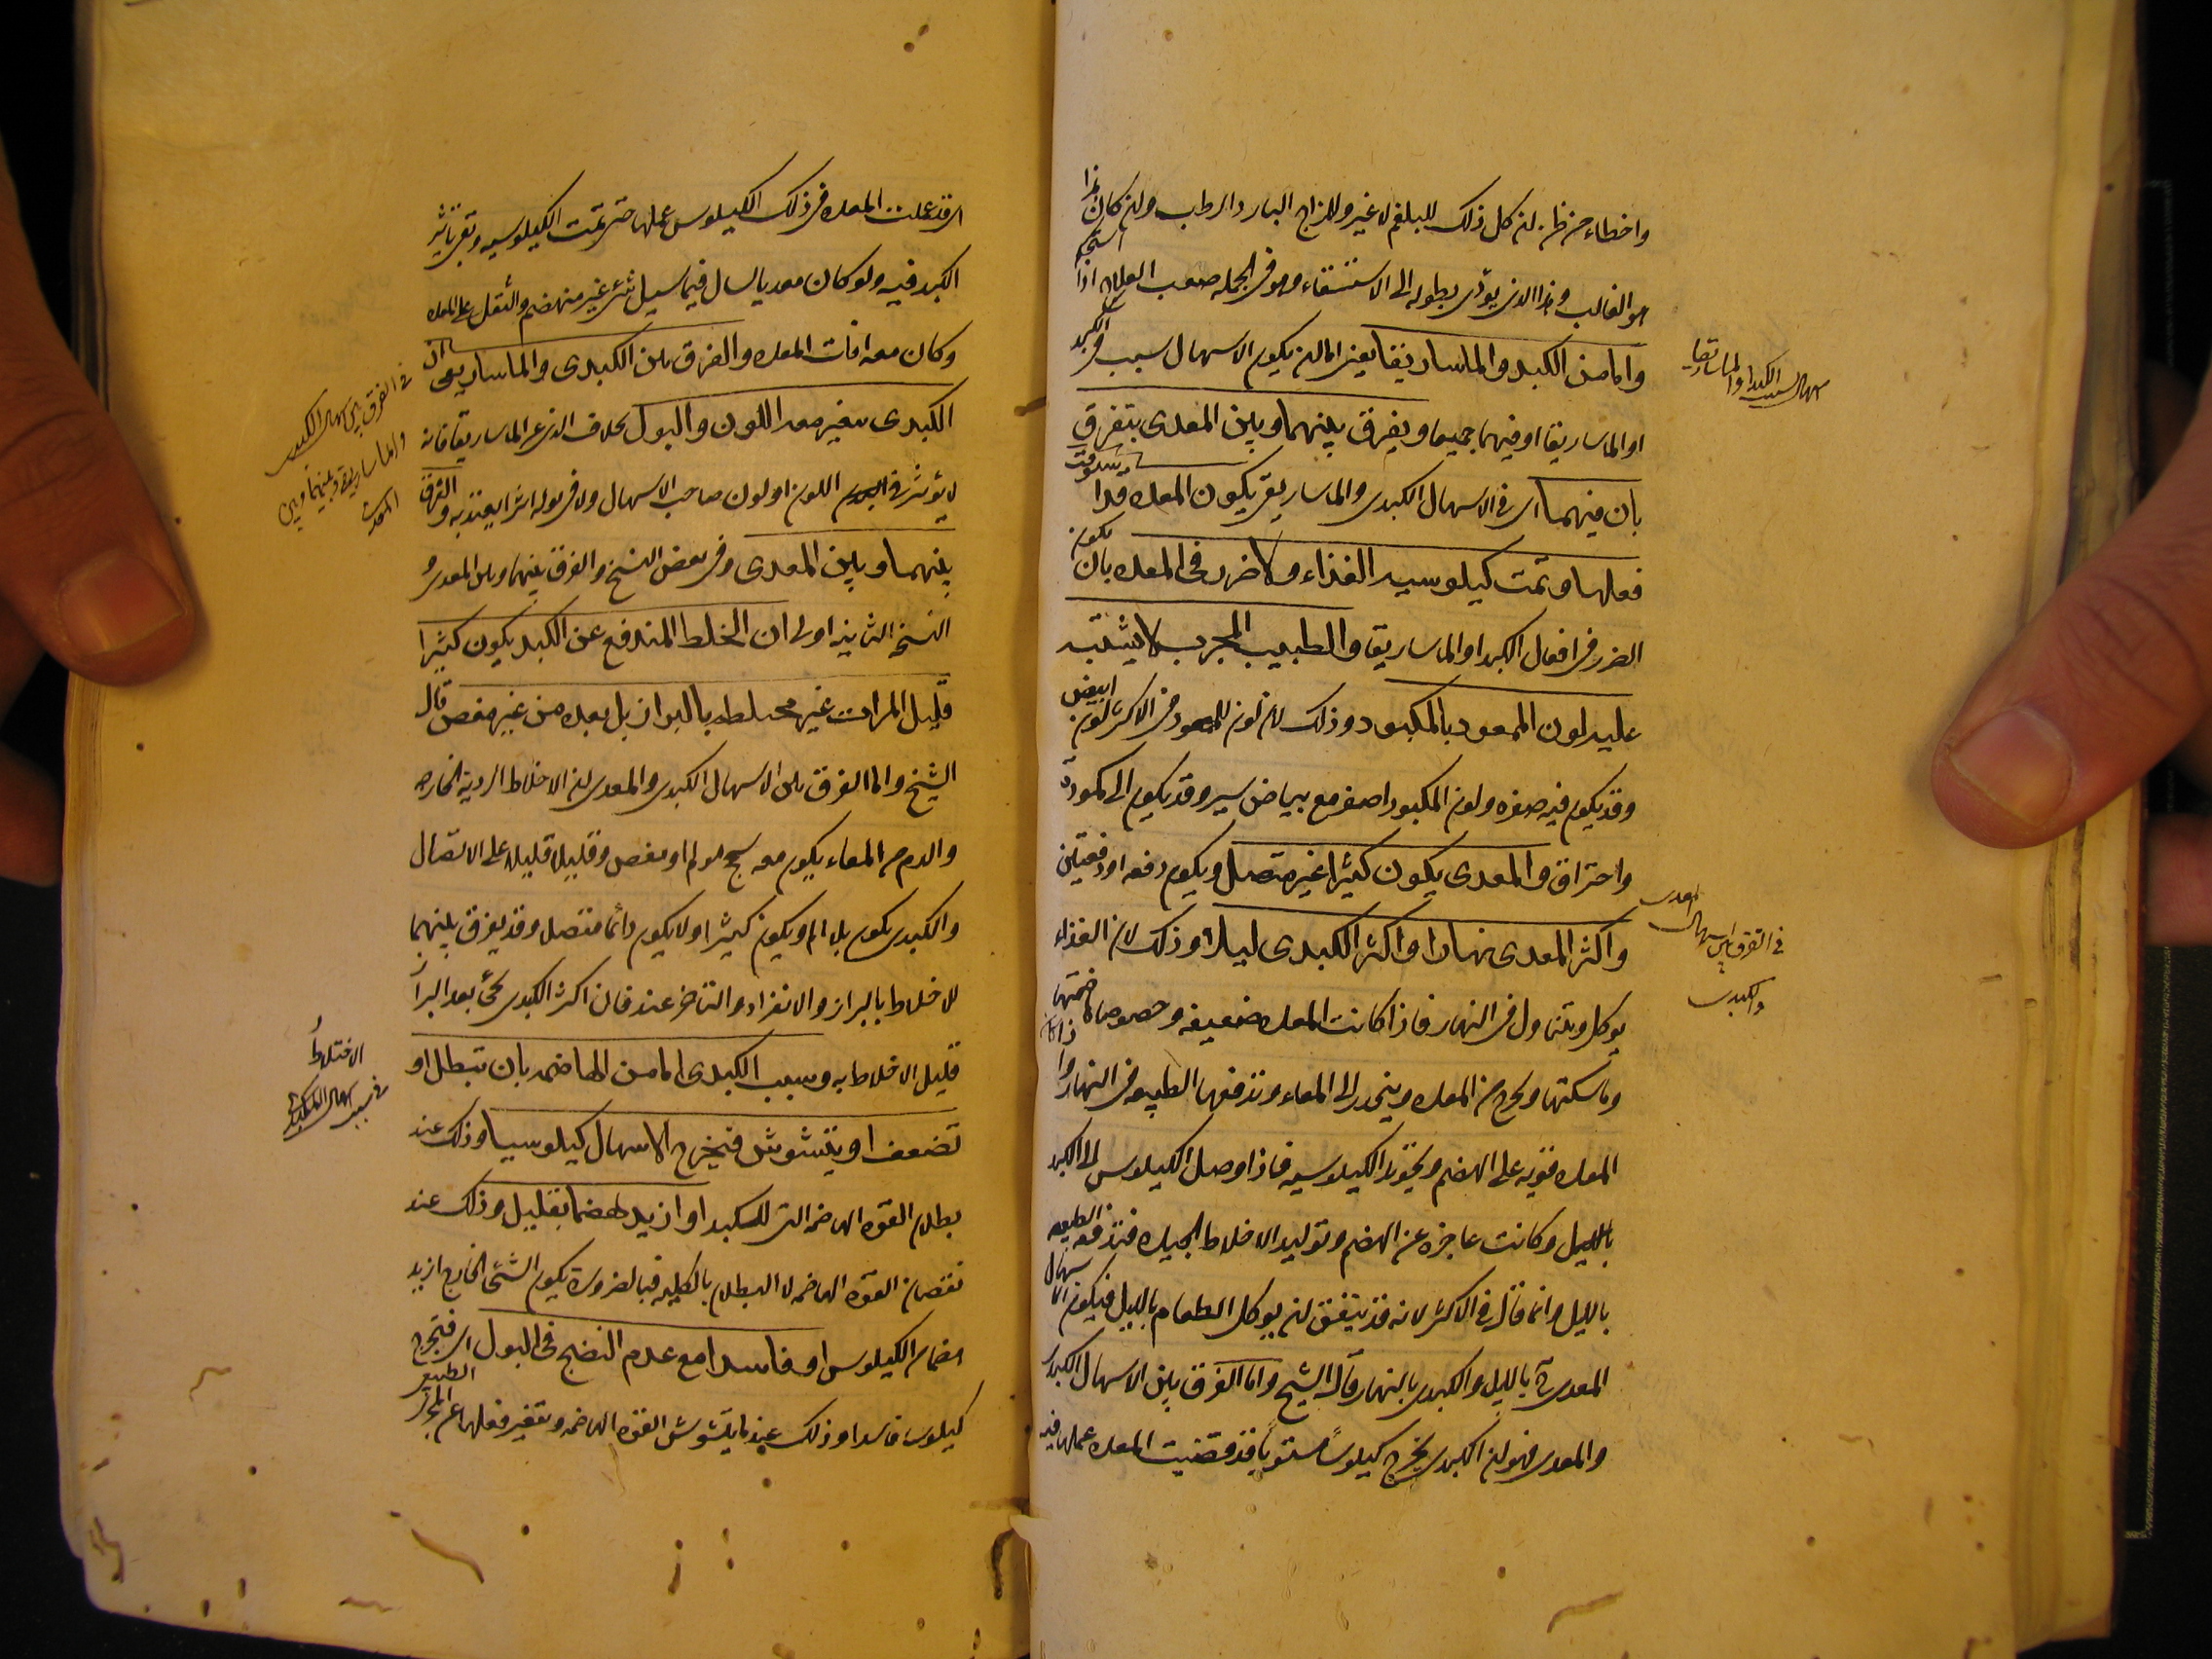 واخطاء من ظن ان كل ذلك للبلغم لا غير وللمزاج البارد الرطب وان كان هذا
هو الغالب وهذا الذي يؤدي بطوله الى الاستسقاء وهو في الجمله صعب العلاج اذا استحكم
واما من الكبد والماساريقا يعني اما ان يكون الاسهال بسبب الكبد
او الماساريقا او فيهما جميعا ويفرق بينهما وبين المعدى بتفرق
بان فيهما اى في الاسهال الكبدى والماساريقى يكون المعده قد استوفت
فعلها وتمت كيلوسيه الغذاء ولا ضرر في المعده بان يكون
الضرر في افعال الكبد او الماساريقا والطبيب المجرب لا يشتبه
عليه لون الممعود بالمكبود وذلك لان لون الممعود في الاكثر لون ابيض
وقد يكون فيه صفره ولون المكبود اصفر مع بياض يسير وقد يكون الى كمودة
واحتراق والمعدى يكون كثيرا غير متصل ويكون دفعه او دفعتين
واكثر المعدى نهارا واكثر الكبدى ليلا وذلك لان الغذاء
يوكل ويتناول في النهار فاذا كانت المعده ضعيفه وخصوصا هاضمتها
وماسكتها ويخرج من المعده وينحدر الى المعاء وتدفعها الطبيعه في النهار واذا كان
المعده قويه على الهضم ويجود الكيلوسيه فاذا وصل الكيلوس الى الكبد
بالليل وكانت عاجزه عن الهضم وتوليد الاخلاط الجيده فتدفعه الطبيعه
بالليل وانما قال في الاكثر لانه قد يتفق ان يوكل الطعام بالليل فيكون الاسهال
المعدى بالليل والكبدى بالنهار قال الشيخ واما الفرق بين الاسهال الكبدى
والمعدى فهو ان الكبدى يخرج كيلوسا مستويا قد قضيت المعده عملها فيه
اسهال بسبب الكبد او الماساريقا
في الفرق بين اسهال المعدى
والكبدى
اى قد عملت المعده في ذلك الكيلوس عملها حتى تمت الكيلوسيه وبقى تاثير
الكبد فيه ولو كان معديا لسال فيما يسيل شئ غير منهضم والثقل على المعده
وكان معه افات المعده والفرق بين الكبدى والماساريقى ان
الكبدى يتغير معه اللون والبول بخلاف الذي عن الماساريقا فانه
لا يؤثر في اللون او لون صاحب الاسهال ولا في بوله اثرا يعتد به والفرق
بينهما وبين المعدى وفي بعض النسخ والفرق بينهما وبين المعدى و
النسخه الثانيه اولى ان الخلط المندفع عن الكبد يكون كثيرا
قليل المرات غير مختلط بالبراز بل بعده من غير مغص قال
الشيخ واما الفرق بين الاسهال الكبدى والمعدى ان الاخلاط الرديه الخارجه
والدم من المعاء يكون معه سحج مولم او مغص وقليلا قليلا على الاتصال
والكبدى يكون بلا الم ويكون كثيرا ولا يكون دائما متصل وقد يفرق بينهما
للاختلاط بالبراز والانفراد والتاخر عنه فان اكثر الكبدى يجئ بعد البراز
قليل الاختلاط به وسبب الكبدى اما من الهاضمه بان تبطل او
تضعف او يتشوش فيخرج الاسهال كيلوسيا وذلك عند
بطلان القوه الهاضمه التي للكبد او ازيد هضما بقليل وذلك عند
نقصان القوه الهاضمه لا البطلان بالكليه فبالضروره يكون الشئ الخارج ازيد
انهضاما من الكيلوس او فاسدا مع عدم النضج في البول اى فتخرج
كيلوس فاسدا وذلك عندما يتشوش القوه الهاضمه وتتغير فعلها عن المجرى الطبيعى
في الفرق بين اسهال الكبدى
والماساريقى وبينهما وبين
المعدى
الاختلاط
في سبب اسهال الكبدى